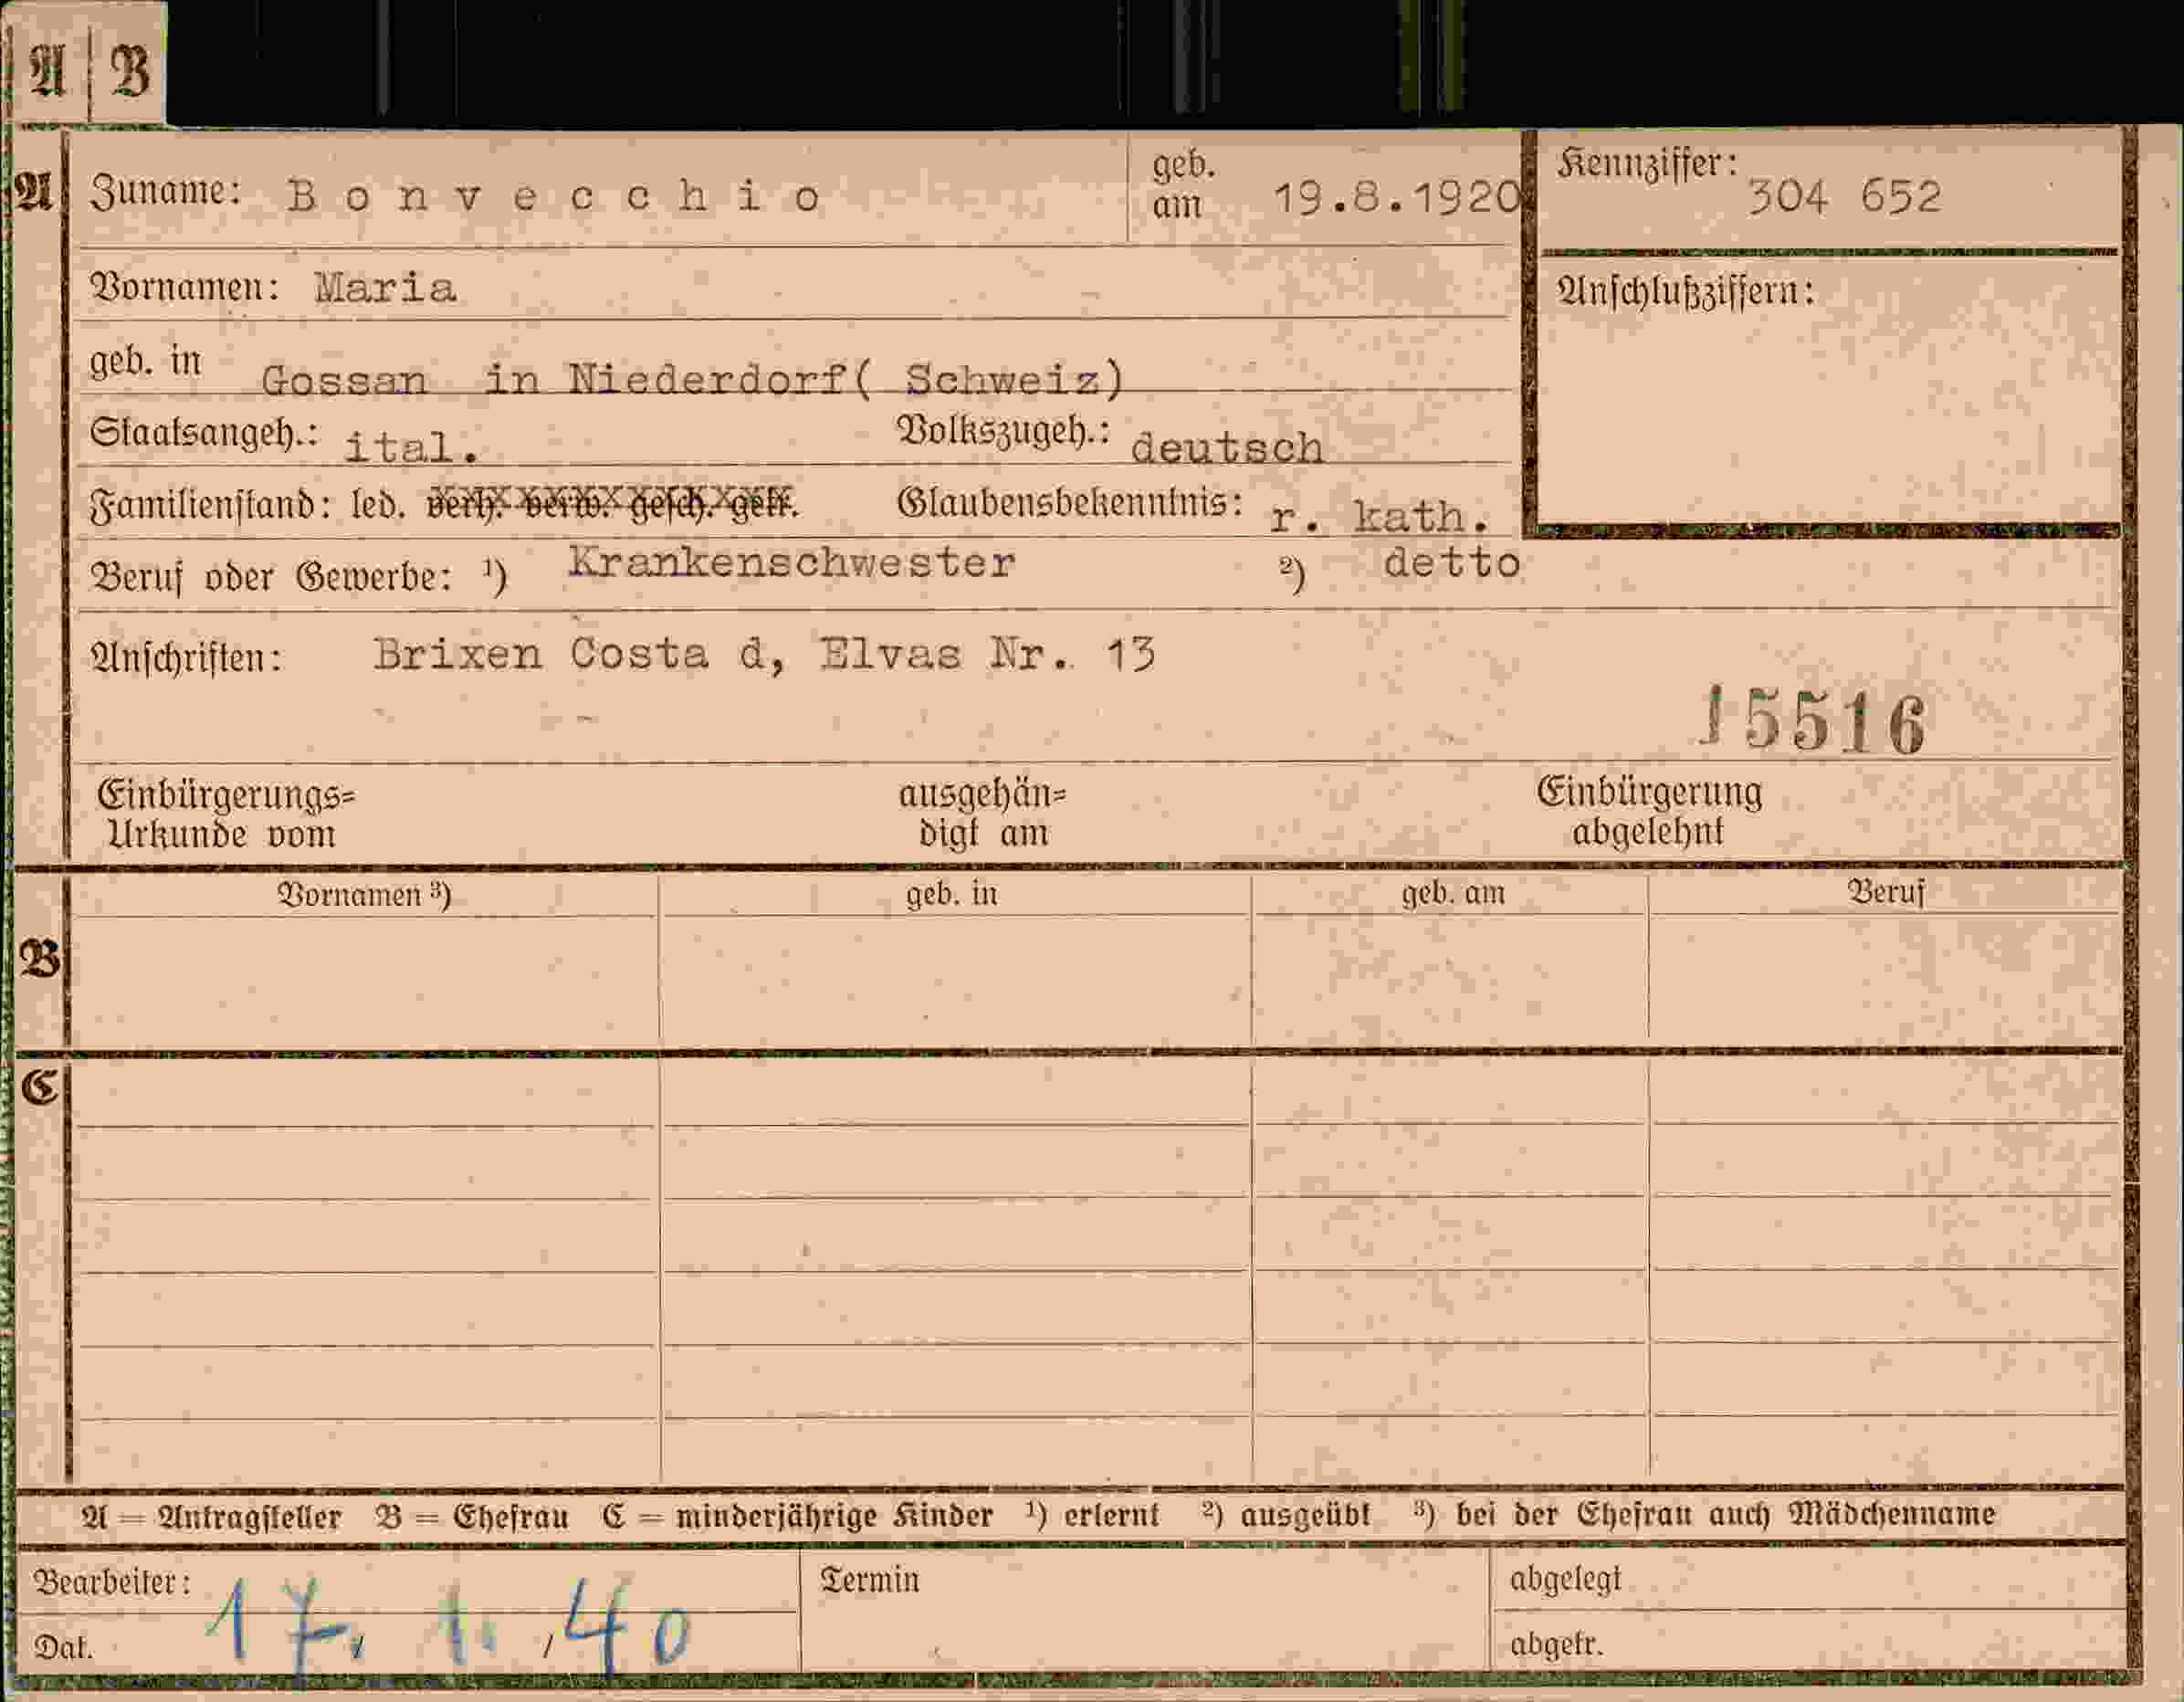 A B
A
Zuname: Bonvecchio geb. am 19.8.1920 Kennziffer: 304 652
Vornamen: Maria Anschlußziffern:
geb. in Gossan in Niederdorf( Schweiz)
Staatsangeh.: ital. Volkszugeh.: deutsch
Familienstand: led. verh. verw. gesch. getr. Glaubensbekenntnis: r. kath.
Beruf oder Gewerbe: ¹) Krankenschwester ²) detto
Anschriften: Brixen Costa d, Elvas Nr. 13
15516
Einbürgerungs= ausgehän= Einbürgerung
Urkunde vom digt am abgelehnt
Vornamen ³) geb. in geb. am Beruf
B
C
A = Antragsteller B = Ehefrau C = minderjährige Kinder ¹) erlernt ²) ausgeübt ³) bei der Ehefrau auch Mädchenname
Bearbeiter: Termin abgelegt
Dat. 17. / 1. / 40 abgetr.